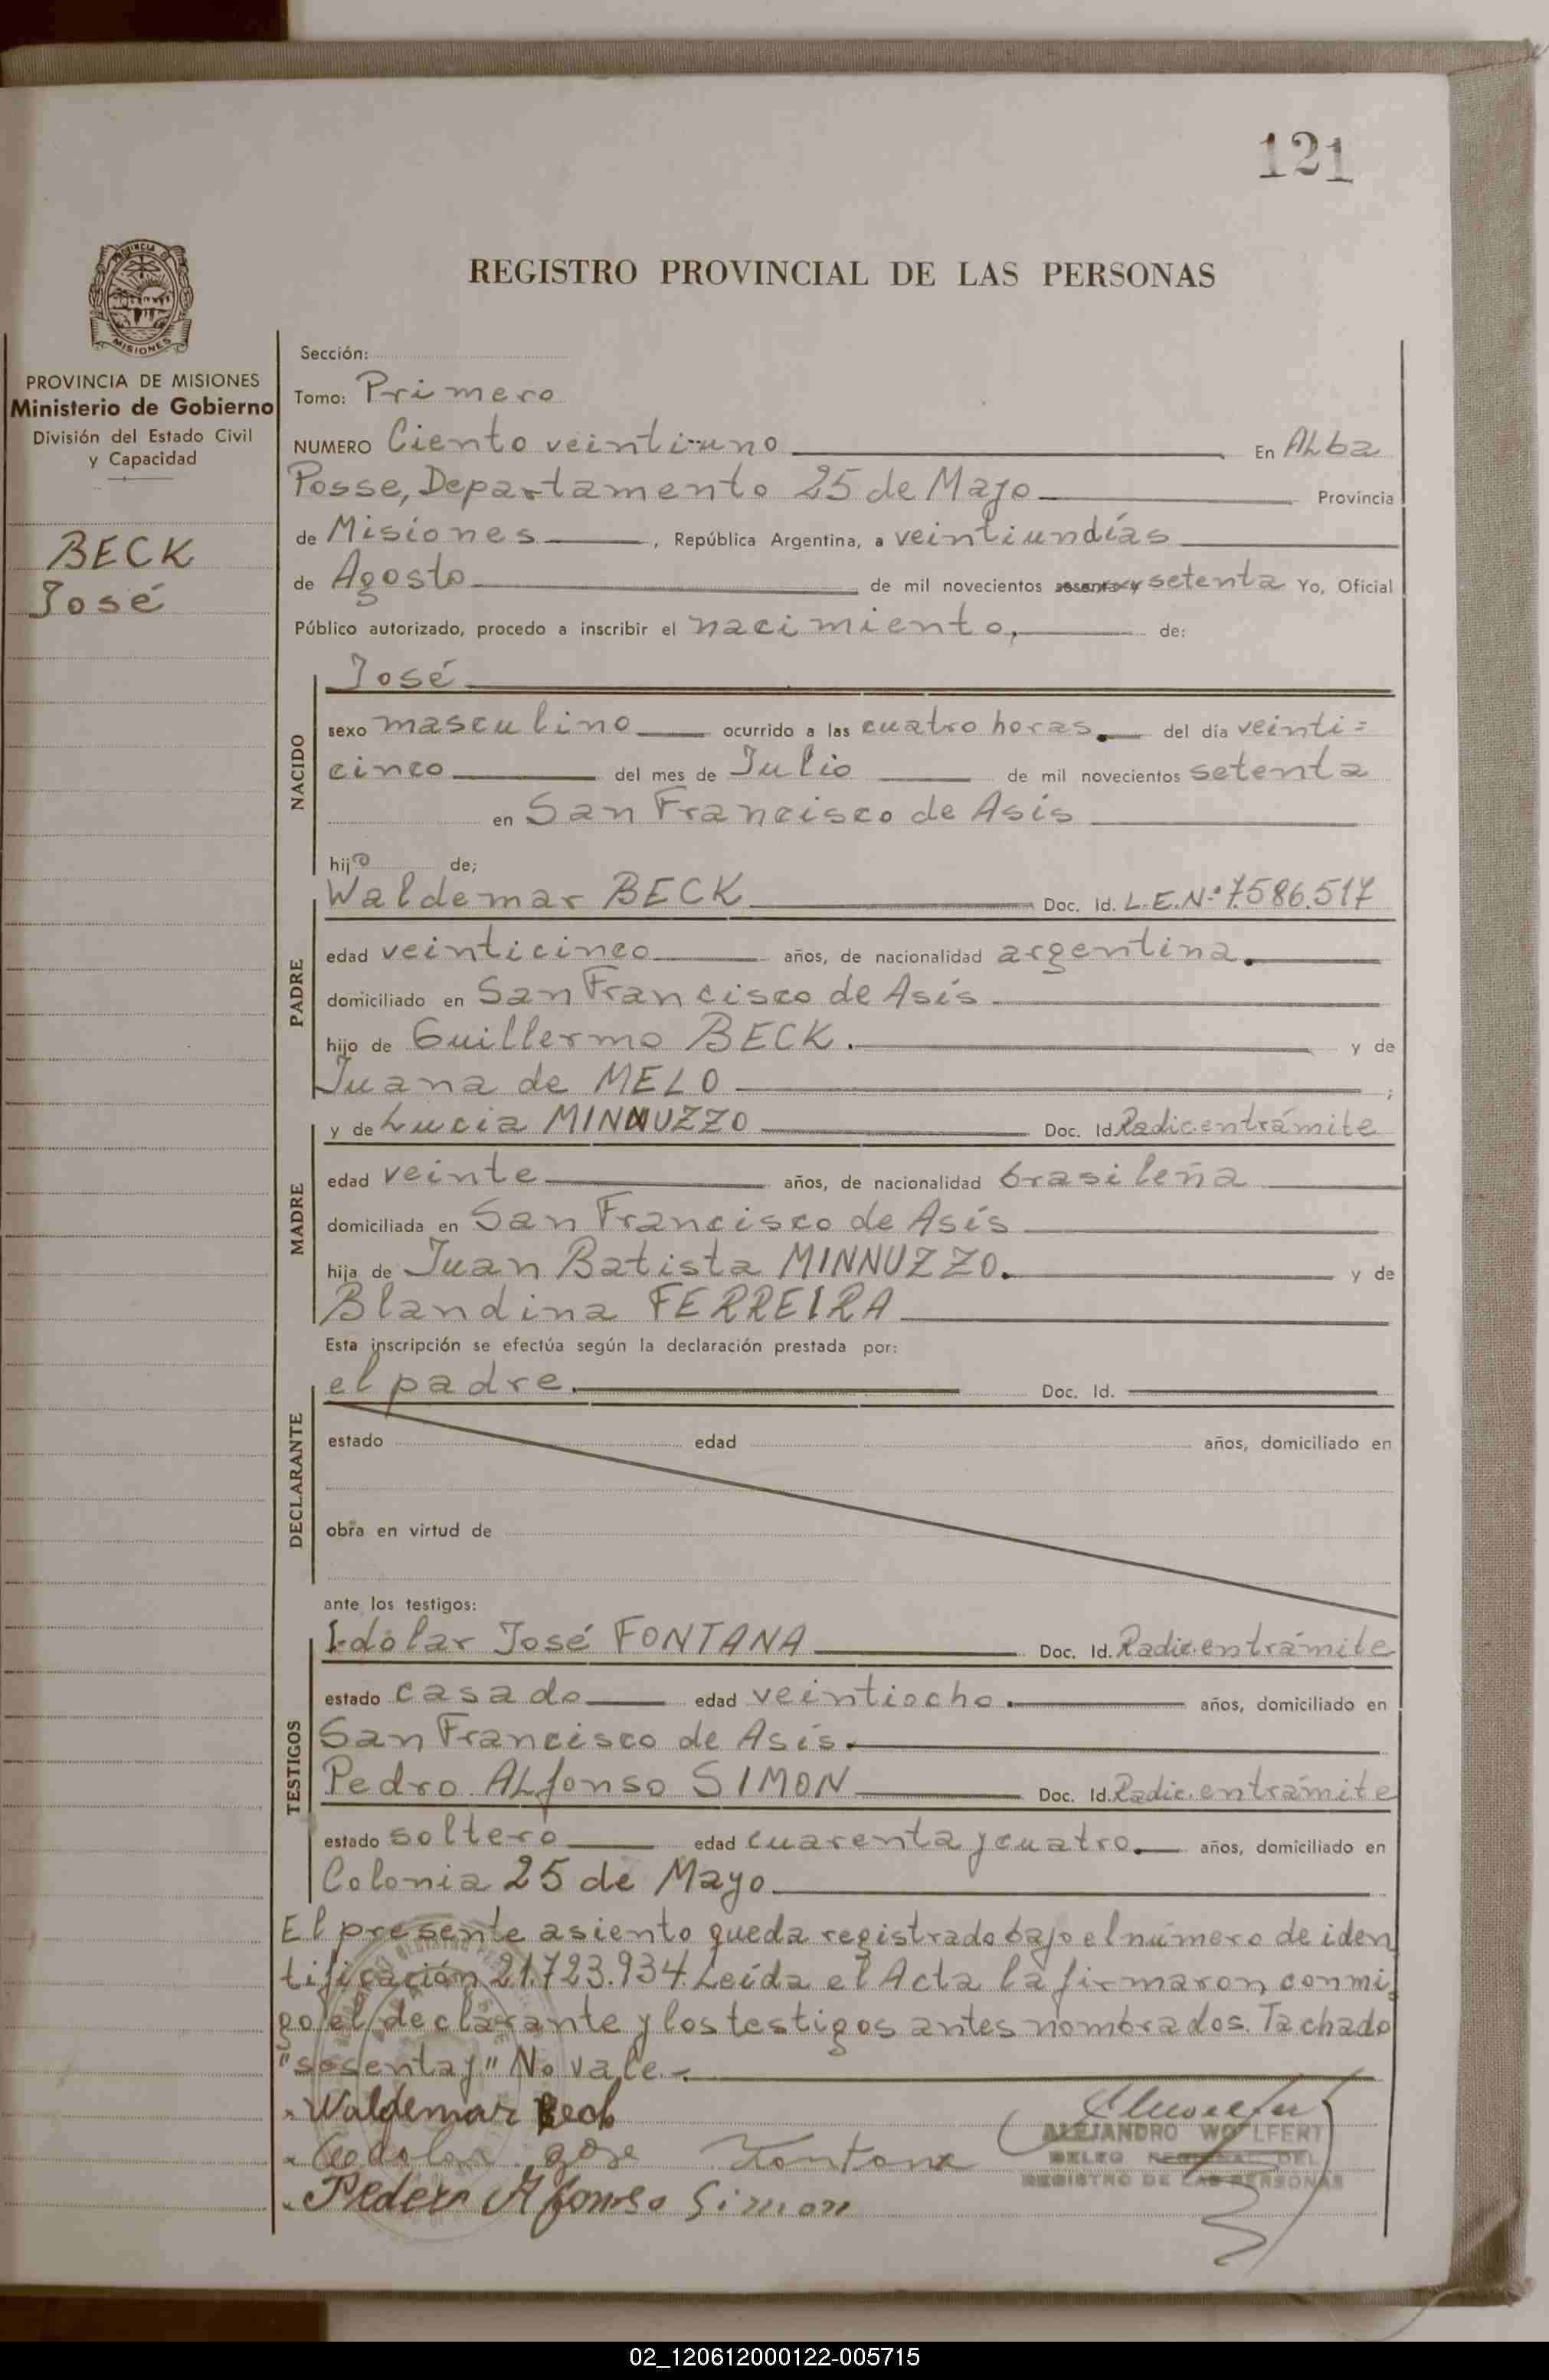 121
PROVINCIA
MISIONES
PROVINCIA DE MISIONES
Ministerio de Gobierno
División del Estado Civil
y Capacidad
BECK
José
REGISTRO PROVINCIAL DE LAS PERSONAS
Sección:
Tomo: Primero
NUMERO Ciento veintiuno En Alba
Posse, Departamento 25 de Mayo Provincia
de Misiones, República Argentina, a veintiundías
de Agosto de mil novecientos sesenta y setenta Yo, Oficial
Público autorizado, procedo a inscribir el nacimiento, de:
NACIDO
José
sexo masculino ocurrido a las cuatro horas. del día veinti=
cinco del mes de Julio de mil novecientos setenta
en San Francisco de Asís
hijo de;
PADRE
Waldemar BECK Doc. Id. L.E.Nº 7.586.517
edad veinticinco años, de nacionalidad argentina.
domiciliado en San Francisco de Asís
hijo de Guillermo BECK. y de
Juana de MELO ;
MADRE
y de Lucia MINNUZZO Doc. Id. Radic.entrámite
edad veinte años, de nacionalidad brasileña
domiciliada en San Francisco de Asís
hija de Juan Batista MINNUZZO. y de
Blandina FERREIRA
Esta inscripción se efectúa según la declaración prestada por:
DECLARANTE
el padre. Doc. Id.
estado edad años, domiciliado en
obra en virtud de
ante los testigos:
TESTIGOS
Idolar José FONTANA Doc. Id. Radic.entrámite
estado casado edad veintiocho. años, domiciliado en
San Francisco de Asís.
Pedro Alfonso SIMON Doc. Id. Radic.entrámite
estado soltero edad cuarenta y cuatro. años, domiciliado en
Colonia 25 de Mayo
El presente asiento queda registrado bajo el número de iden
tificación 21.723.934. Leída el Acta la firmaron, conmi_
go el declarante y los testigos antes nombrados. Tachado
"sesenta y" No vale.-
Waldemar Beck
José Fontana
Pedro Alfonso Simon
ALEJANDRO WOLFERT
DELEG REGIONAL DEL
REGISTRO DE LAS PERSONAS
02_120612000122-005715